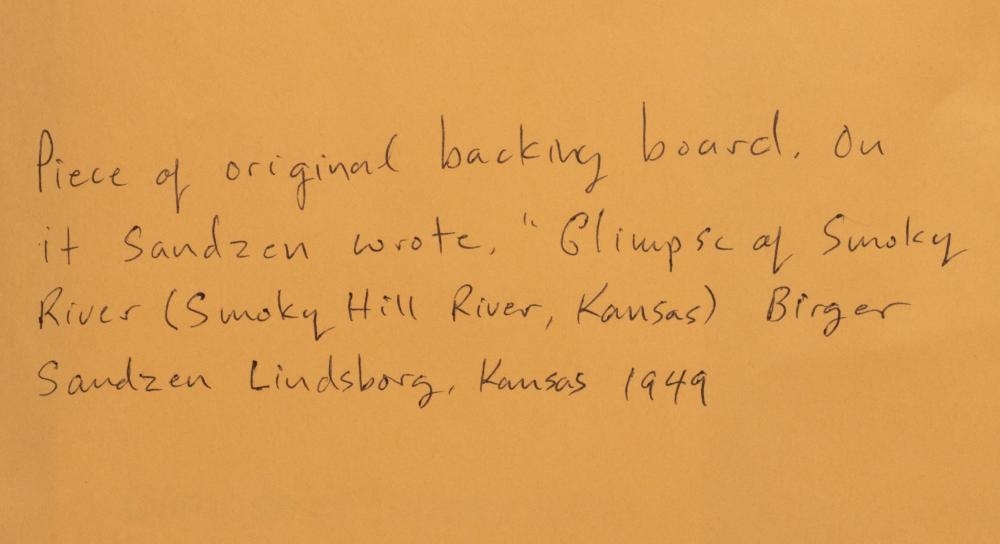 Piece of original backing board. On
it Sandzen wrote, "Glimpse of Smoky
River (Smoky Hill River, Kansas) Birger
Sandzen Lindsborg, Kansas 1949